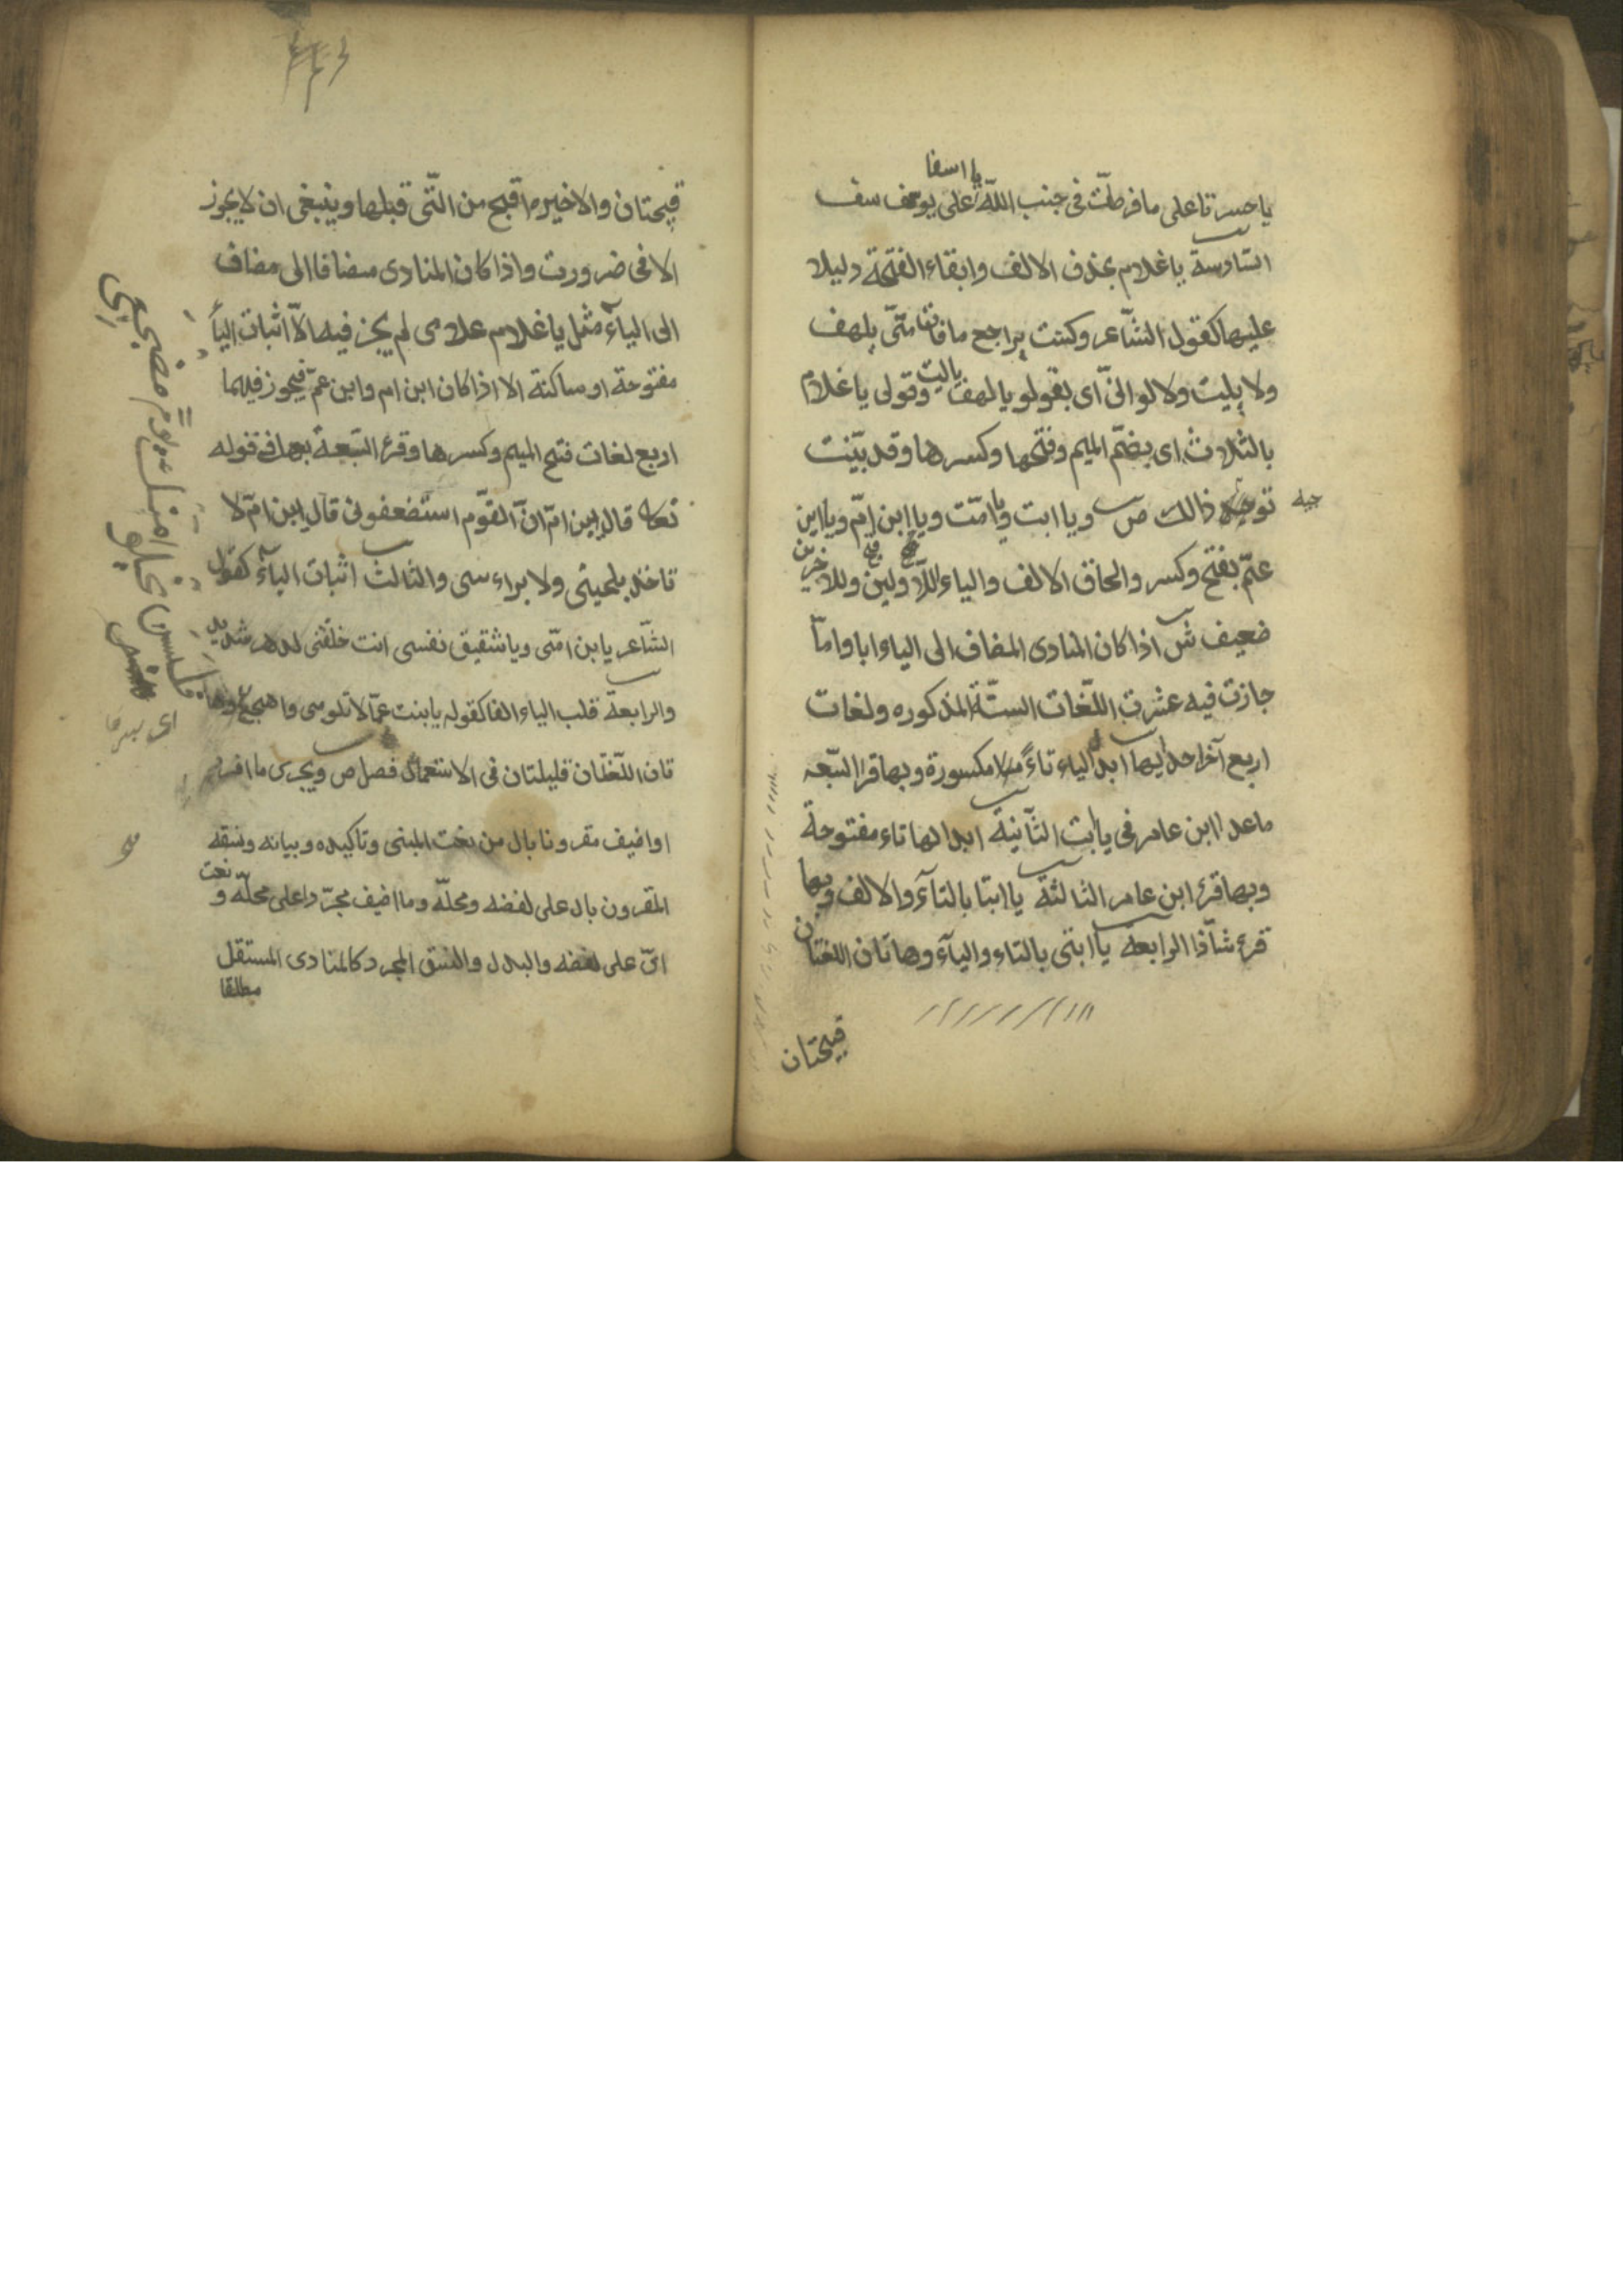 يا اسفا
يا حسرتا على ما فرطّت فى جنب اللّه على يوسف
السّادسة يا غلام بحذف الالف وابقاء الفتحة دليلا
عليها كقول الشّاعر وكست براجع ما فات منّى بلهف
ولا بليت ولا لو انّى اى بقولو يا لهف يا ليت وقولى يا غلام
بالثلاث اى بضمّ الميم وفتحها وكسرها وقد بيّنت
توجيه ذالك ص ويا ابت ويا امّت ويا ابن امّ ويا ابن
جيه
عمّ بفتح وكسر والحاق الالف والياء للاّولين وللاخرين
ضعيف ش اذا كان المنادى المضاف الى الياء ابا واماّ
جازت فيه عشرت اللّغات الستّة المذكوره ولغات
اربع آخر احديها ابدال الياء تاءً مكسورة وبها قرا السّبعه
ما عدا ابن عامر فى يا ابت الثّانية ابدالها تاء مفتوحة
وبها قرئ ابن عامر الثالثة يا ابتا بالتآء والالف وبها
قرء شآذّا الرابعة يا ابتى بالتاء واليآء وهاتان اللغتان
قبيحتان
قبيحتان والاخيره اقبح من الّتى قبلها وينبغى ان لا يجوز
الا فى ضرورت واذا كان المنادى مضافا الى مضاف
الى اليآء مثل يا غلام علامى لم يجز فيه الاّ اثبات اليأ
مفتوحة او ساكنة الا اذا كان ابن ام وابن عمّ فيجوز فيهما
اربع لغات فتح الميم وكسرها وقرئ السّبعة بهما فى قوله
تعا قال ابن امّ انّ القوم استضعفونى قال ابن امّ لا
تاخذ بلحيتى ولا براءسى والثالث اثبات اليآء كقول
الشّاعر يا بن امّى ويا شقيق نفسى انت خلّفتنى لدهر شديد
والرابعة قلب الياء الفا كقوله يا بنت عمّا لا تلومى واهجعى وها
تان اللّغتان قليلتان فى الاستعمال فصل ص ويجرى ما افرد
او اضيف مقرونا بال من نعت المبنى وتاكيده وبيانه ونسقه
المقرون بال على لفضه ومحلّه وما اضيف مجرّدا على محلّه و نعت
اىّ على لفضه والبدل والنسق المجرد كالمنادى المستقل
مطلقا